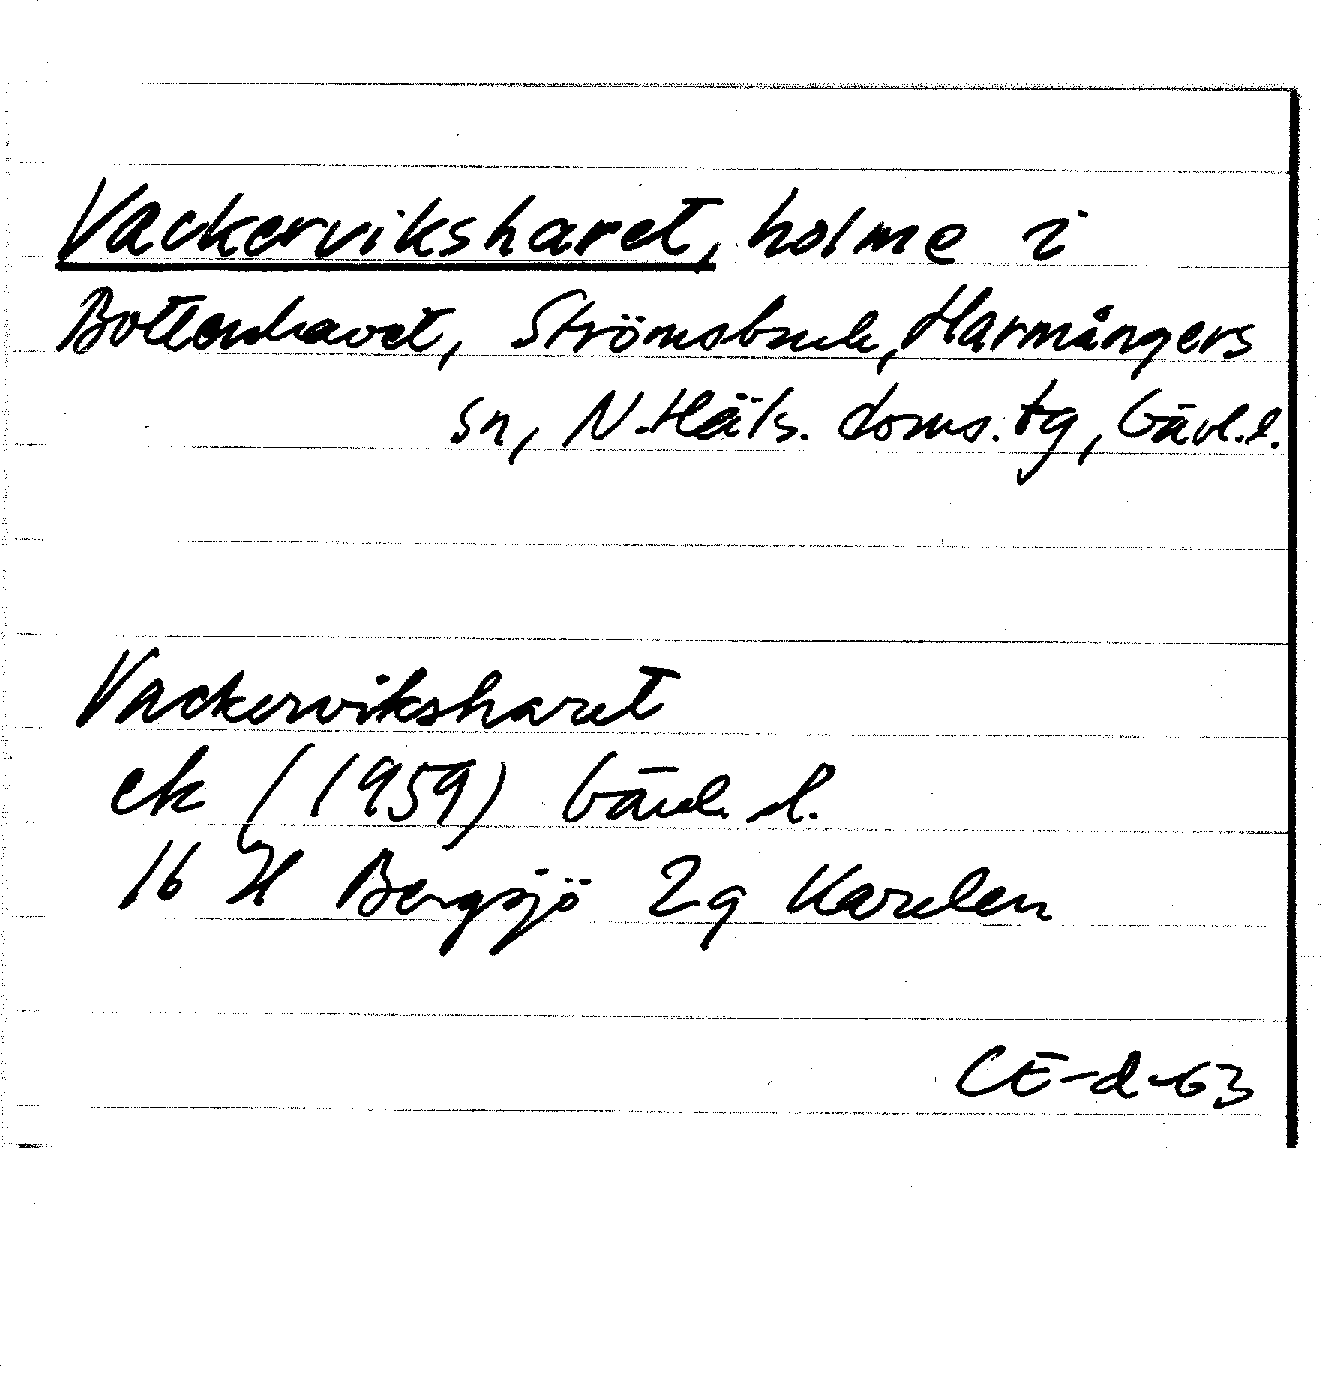 Vackerviksharet, holme i
Bottenhavet, Strömsbruk, Harmångers
sn, N. Häls. doms. tg, Gävl. l.
Vackerviksharet
ek (1959) Gävl. l.
16 H Bergsjö 2g Karelen
CE-d-63